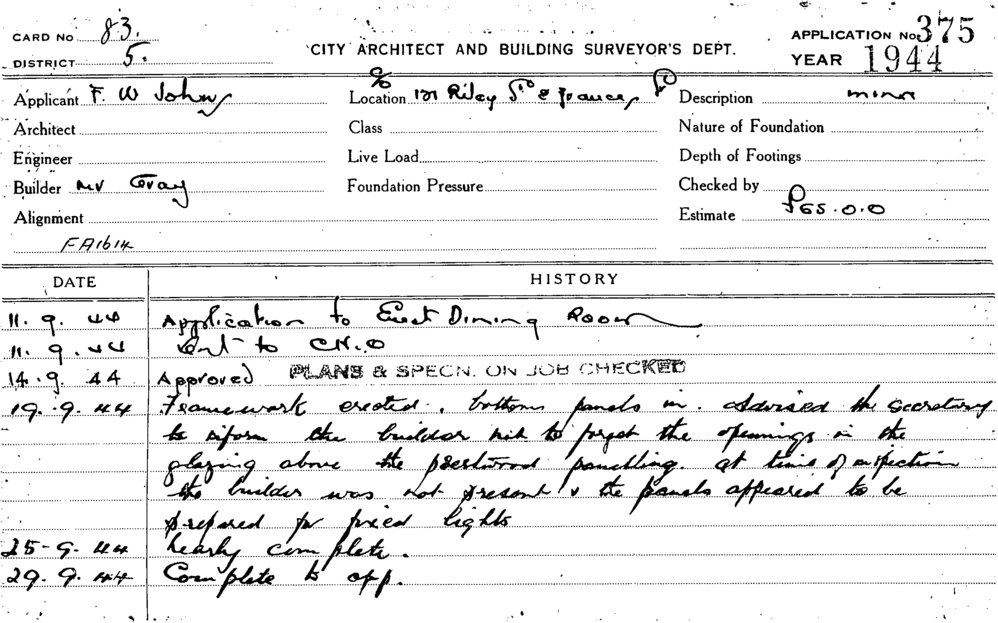 CARD No 83.
DISTRICT 5.
CITY ARCHITECT AND BUILDING SURVEYOR'S DEPT.
APPLICATION No 375
YEAR 1944
Applicant F. W Johns
Location % 121 Riley St & Frances St
Description minor
Architect
Class
Nature of Foundation
Engineer
Live Load
Depth of Footings
Builder Mr Gray
Foundation Pressure
Checked by
Alignment
Estimate £65.0.0
FA1614
DATE
HISTORY
11. 9. 44 Application to Erect Dining Room
11. 9. 44 to C.H.O
14. 9. 44 Approved PLANS & SPECN. ON JOB CHECKED
19. 9. 44 Framework erected, bottom panels in. Advised the secretary
to inform the builder not to forget the openings in the
glazing above the panelling. at time of inspection
the builder was not present & the panels appeared to be
prepared for fixed lights
25-9.44 nearly complete.
29. 9. 44 Complete to app.